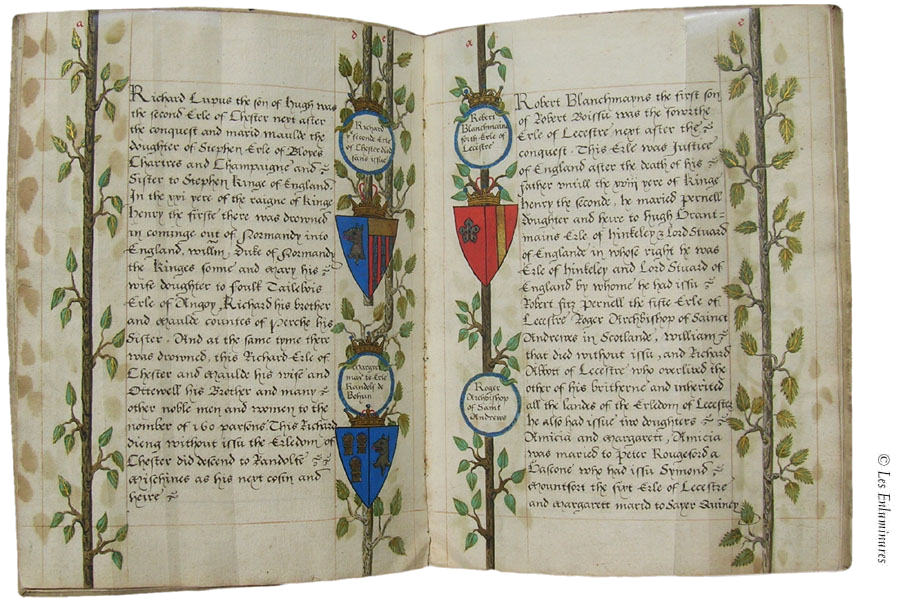 a
Richard Lupus the son of Hugh was
the second Erle of Chester next after
the conquest and marid maulde the
doughter of Stephen Erle of Bloyes
Chartres and Champaigne and
Sister to Stephen Kinge of England
In the xxi yere of the raigne of Kinge
Henry the firste there was drowned
in cominge out of Normandy into
England. willm Duke of Normandy
the Kinges sonne and Mary his
wife doughter to foulk Tailebois
Erle of Angoy, Richard his brother
and Maulde countes of Perche his
Sister. And at the same tyme there
was drowned, this Richard Erle of
Chester and Maulde his wife and
Ottewell his Brother and many
other noble men and women to the
nomber of 160 parsons. This Richard
dieng without issu the Erledom of
Chester did descend to Randolfe
Mischines as his next cosin and
heire
d
c
Richard
seconde Erle
of Chester died
sans issue
Margret
mar to Erle
Randolf de
Bohun
a
Robert
Blanchmains
fourth Erle of
Lecestre
Roger
Archbishop
of Saint
Andrews
e
Robert Blanchmayns the first son
of Robert Boissu was the fowrthe
Erle of Lecestre next after the
conquest. This Erle was Justice
of England after the death of his
father untill the xviij yere of Kinge
Henry the seconde, he maried Pernell
doughter and heire to Hugh Grant-
mains Erle of hinkeley & Lord Stuard
of Englande in whose right he was
Erle of hinkeley and Lord Stuard of
England by whome he had issu
Robert fitz Pernell the fiste Erle of
Lecestre Roger Archbishop of Sainct
Andrewes in Scotland, William
that died without issu, and Richard
Abbott of Lecestre who overlived the
other of his bretherne and inherited
all the landes of the Erledom of Lecester
he also had issue two doughters
Amicia and Margarett, Amicia
was maried to Peter Rougeford a
Gascone who had issu Symond
Mountfort the sixt Erle of Lecestre
and Margarett marid to Sayer Quincy
© Les Enluminures